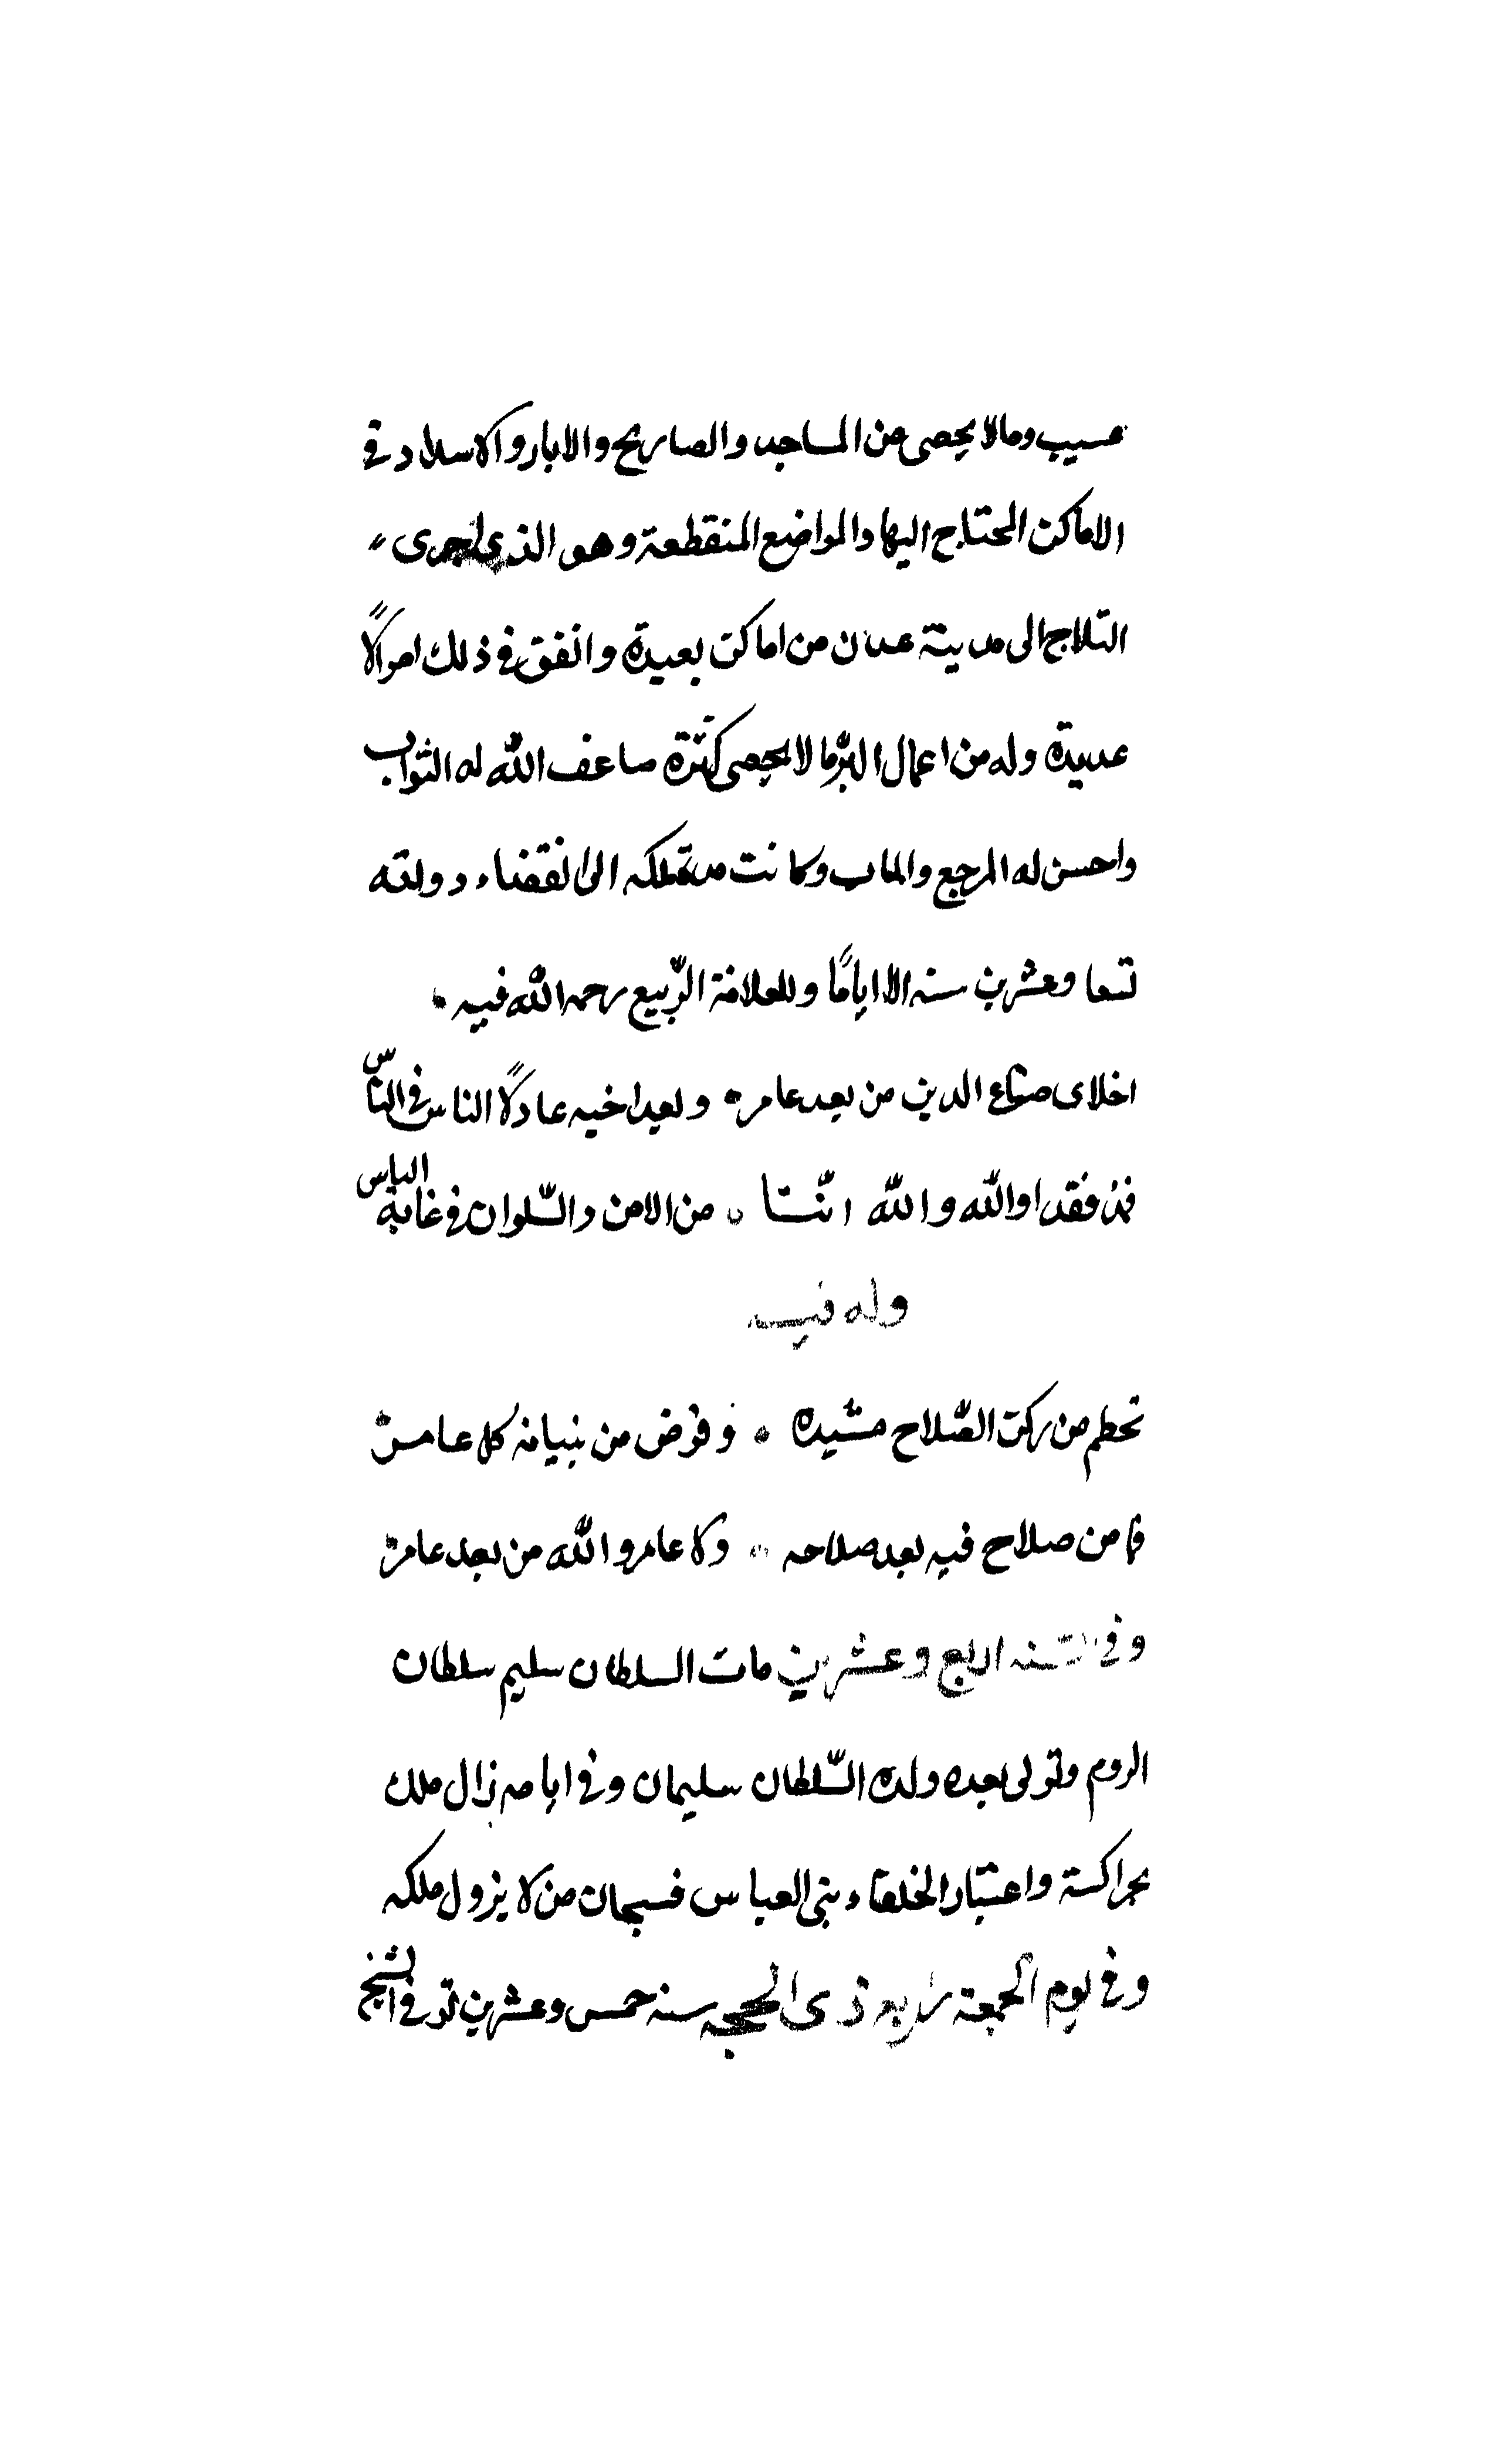 عسيب ومالا يحصى من المساجد والصهاريج والابار والاسداد في
الاماكن المحتاج اليها والمواضع المنقطعة وهو الذي اجرى
التلاج الى مدينة عدن من اماكن بعيدة وانفق في ذلك اموالاً
عديدة وله من اعمال البرّ ما لا يحصى كثرة ضاعف اللّه له الثواب
واحسن له المرجع والماب وكانت مدة ملكه الى انقضاء دولته
تسعا وعشرين سنه الا اياماً وللعلامة الرّبيع رحمه اللّه فيه
اخلاى ضاع الدين من بعد عامر وبعد اخيه عادلاً الناس في النّاس
فمذ فقدا واللّه واللّه انّنا من الامن والسّلوان في غاية الياس
وله فيه
تحطم من ركن الصّلاح مشيده وقوض من بنيانه كل عامر
فما من صلاح فيه بعد صلاحه ولا عامر واللّه من بعد عامر
وفي سنه اربع وعشرين مات السلطان سليم سلطان
الروم وتولى بعده ولده السّلطان سليمان وفي ايامه زال ملك
جراكسة واعتبار الخلفاء بني العباس فسبحان من لا يزول ملكه
وفي يوم الجمعة رابع ذى الحجه سنه خمس وعشرين توفى الشيخ